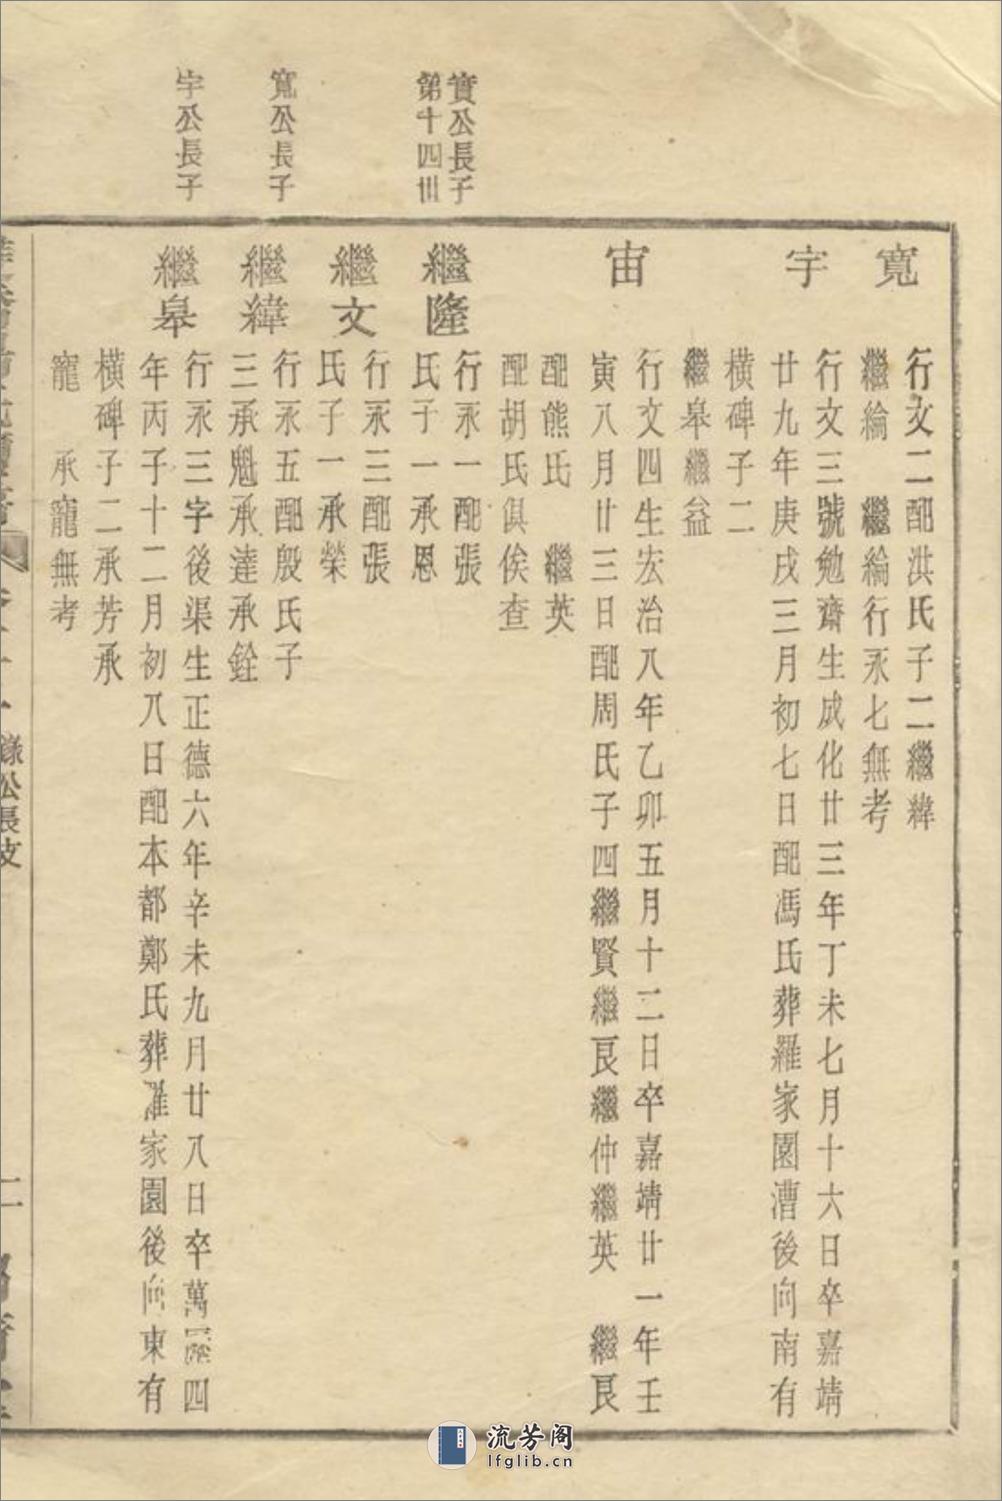 實公長子
第十四世
寬公長子
宇公長子
寬
行文二配洪氏子二繼緯
繼綸　繼綸行永七無考
宇
行文三號勉齋生成化廿三年丁未七月十六日卒嘉靖
廿九年庚戌三月初七日配馮氏葬羅家園漕後向南有
橫碑子二
繼皋繼益
宙
行文四生宏治八年乙卯五月十二日卒嘉靖廿一年壬
寅八月廿三日配周氏子四繼賢繼良繼仲繼英　繼良
配熊氏　繼英
配胡氏俱俟查
繼隆
行永一配張
氏子一承恩
繼文
行永三配張
氏子一承榮
繼緯
行永五配殷氏子
三承魁承達承銓
繼皋
行永三字後渠生正德六年辛未九月廿八日卒萬曆四
年丙子十二月初八日配本都鄭氏葬羅家園後向東有
橫碑子二承芳承
寵　承寵無考
錄公長支
流芳阁
lfglib.cn